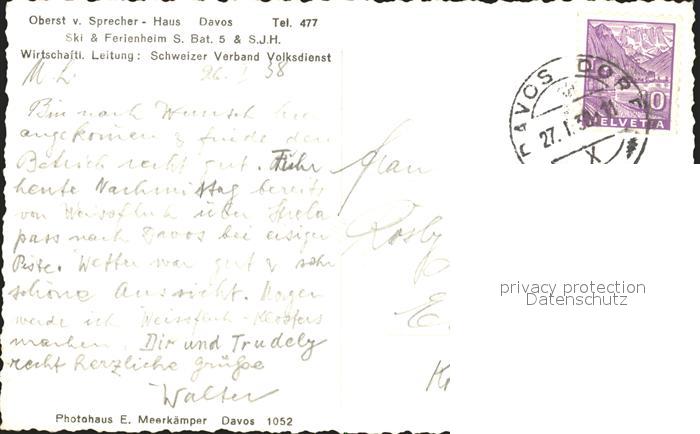 Oberst v. Sprecher - Haus Davos Tel. 477
Ski & Ferienheim S. Bat. 5 & S.J.H.
Wirtschaftl. Leitung: Schweizer Verband Volksdienst
M. L. 26. I 38
Bin nach Wunsch hier
angekommen & finde den
Betrieb recht gut. Fuhr
heute Nachmittag bereits
von Weissfluh über Strela
pass nach Davos bei eisiger
Piste. Wetter war gut & sehr
schöne Aussicht. Morgen
werde ich Weissfluh - Klosters
machen. Dir und Trudely
recht herzliche Grüsse
Walter
Photohaus E. Meerkämper Davos 1052
Frau
Rösly
DAVOS DORF
27. I. 38
X
10
HELVETIA
privacy protection
Datenschutz